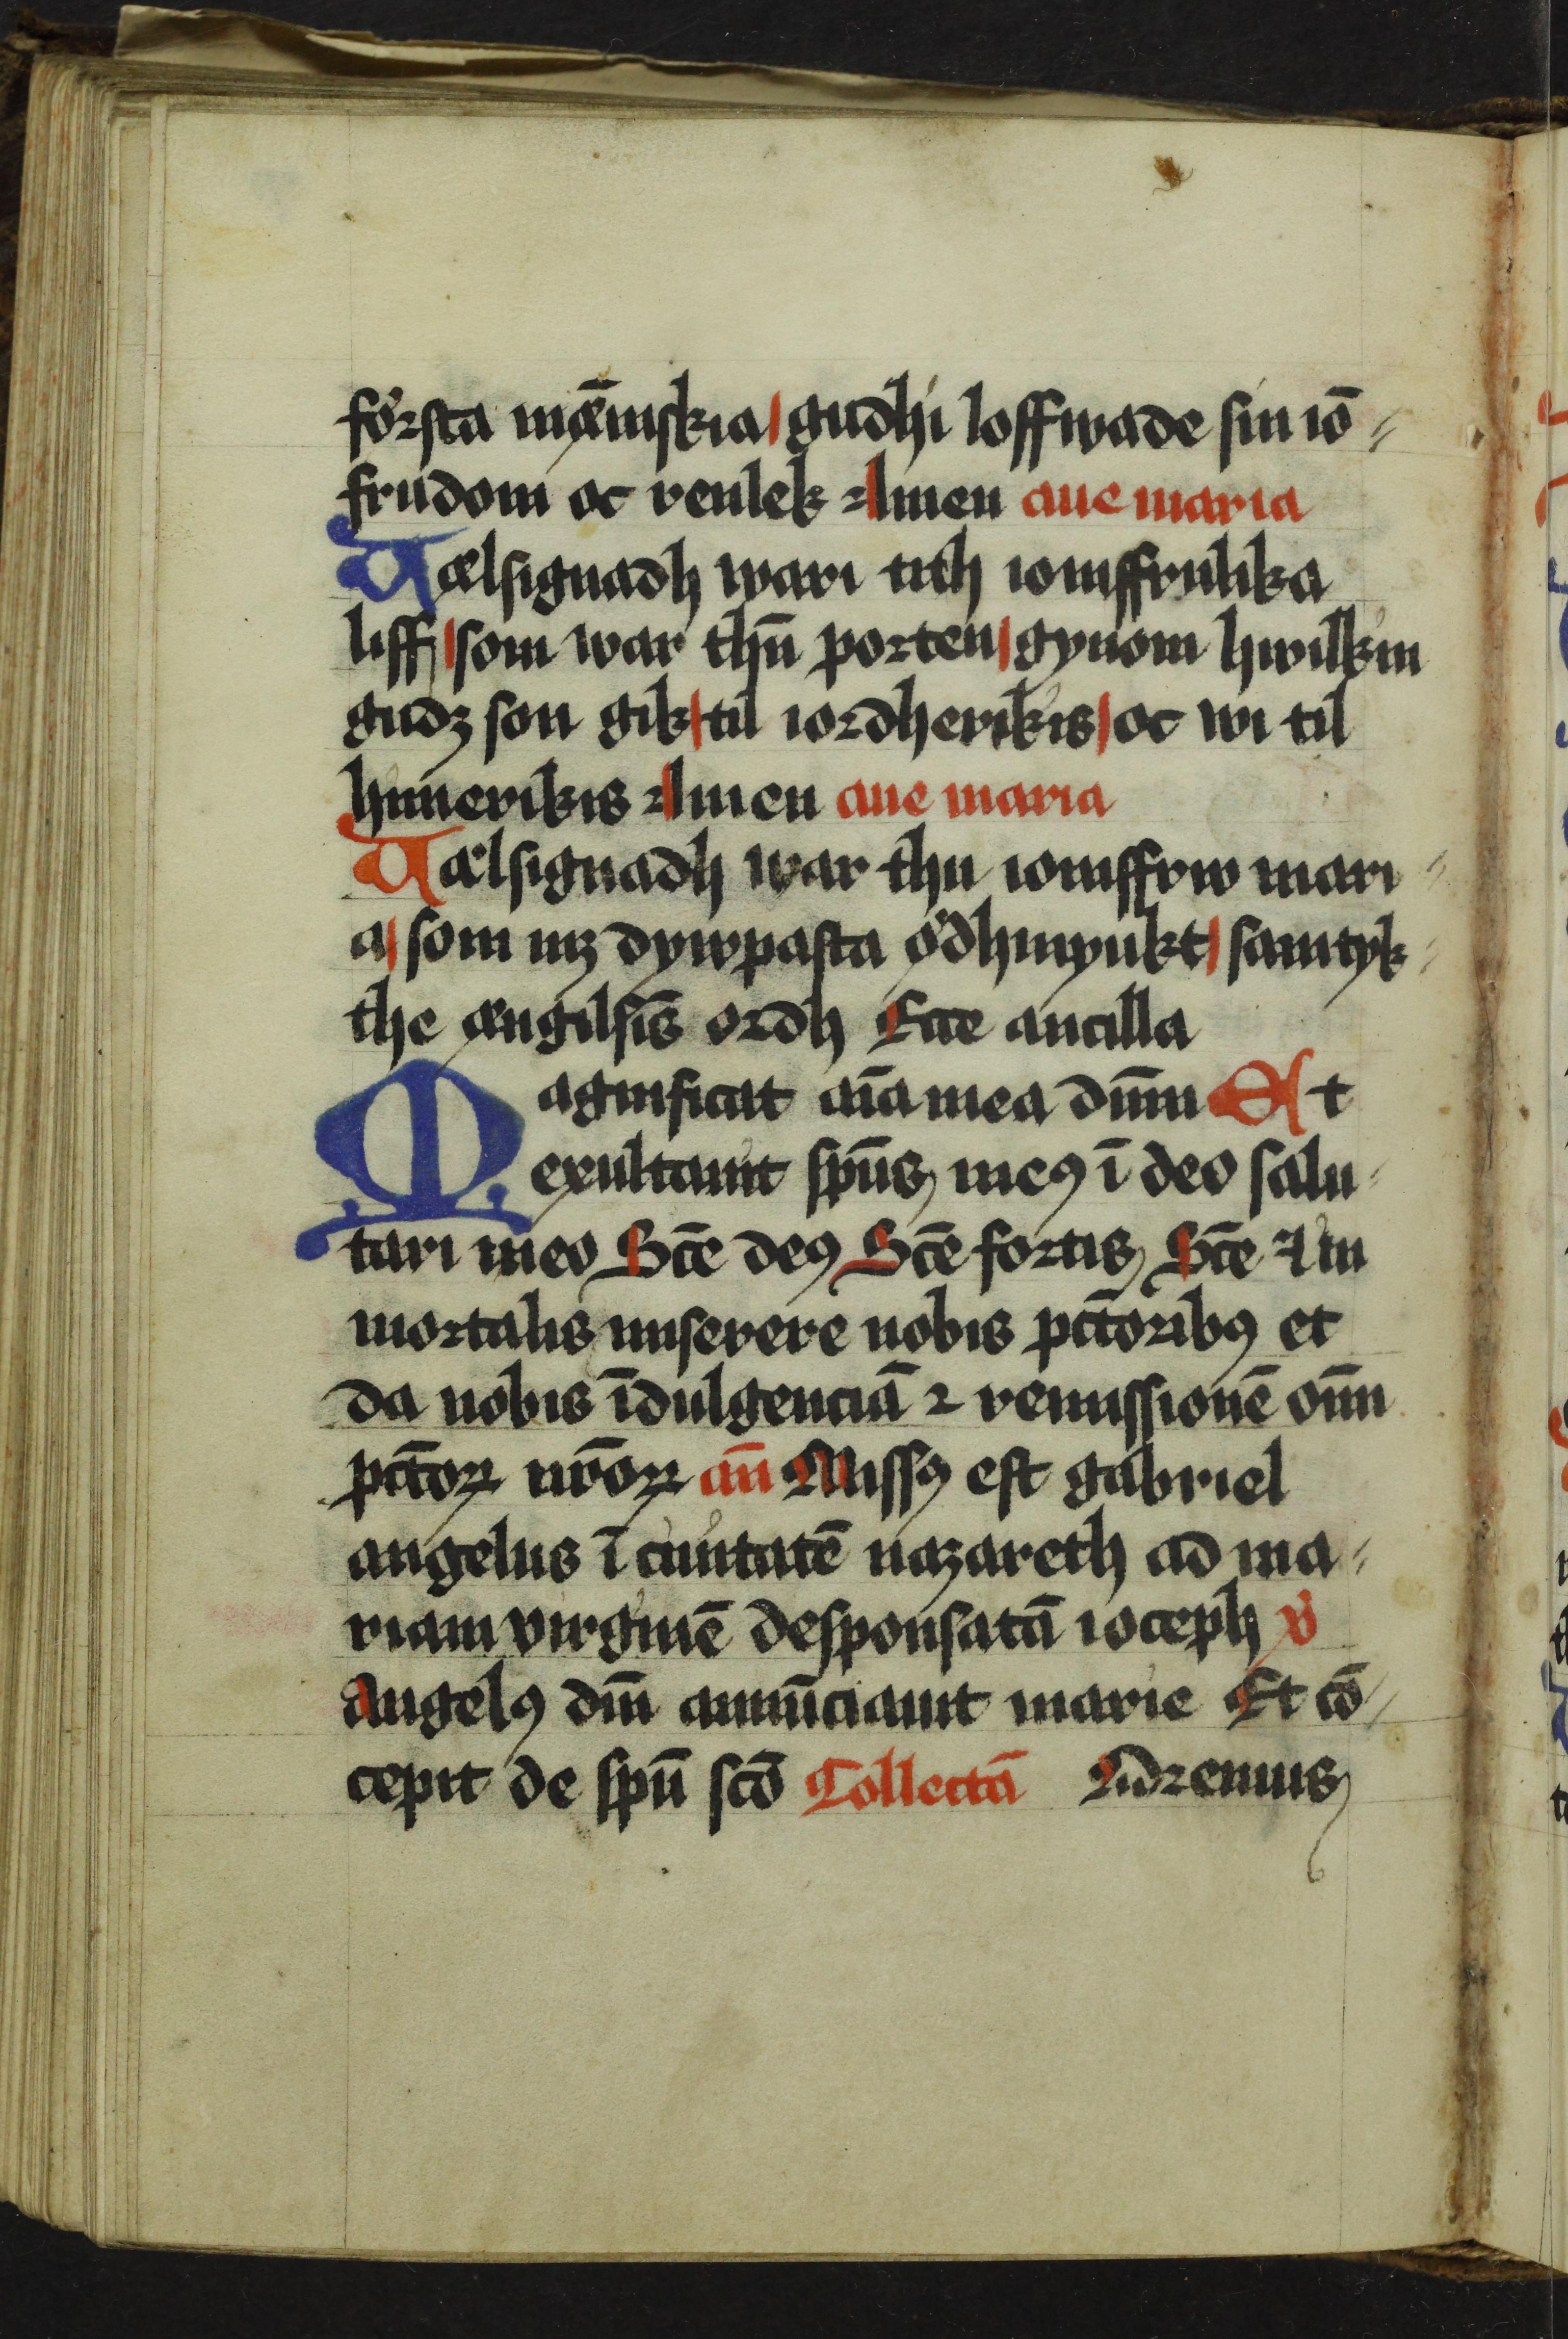 första mænniskia / gudhi loffwade sin iō⸗
frudom oc renlek Amen aue maria
Uælsignadh wari tith iomffrulika
liff / som war thn̄ porten / gynom hwilkin
gudz son gik / til iordherikis / oc wi til
himerikis Amen aue maria
Uælsignadh war thu iomffrw mari⸗
a / som mz dywpasta ödhmyukt / samtyk⸗
the ængilsīs ordh Ecce ancilla
Magnificat aīa mea dn̄m Et
exultauit sp̄us meꝯ ī deo salu⸗
tari meo Sc̄e deꝯ Sc̄e fortis Sc̄e ⁊ im
mortalis miserere nobis pc̄toribꝯ et
da nobis īdulgenciā ⁊ remissionē om̄
pc̄toꝝ nr̄oꝝ an̄ Missꝯ est gabriel
angelus ī ciuitatē nazareth ad ma⸗
riam virginē desponsatā ioceph v̉
Angelꝯ dn̄i annūciauit marie Et cō⸗
cepit de sp̄u sc̄o Collectā Adremus